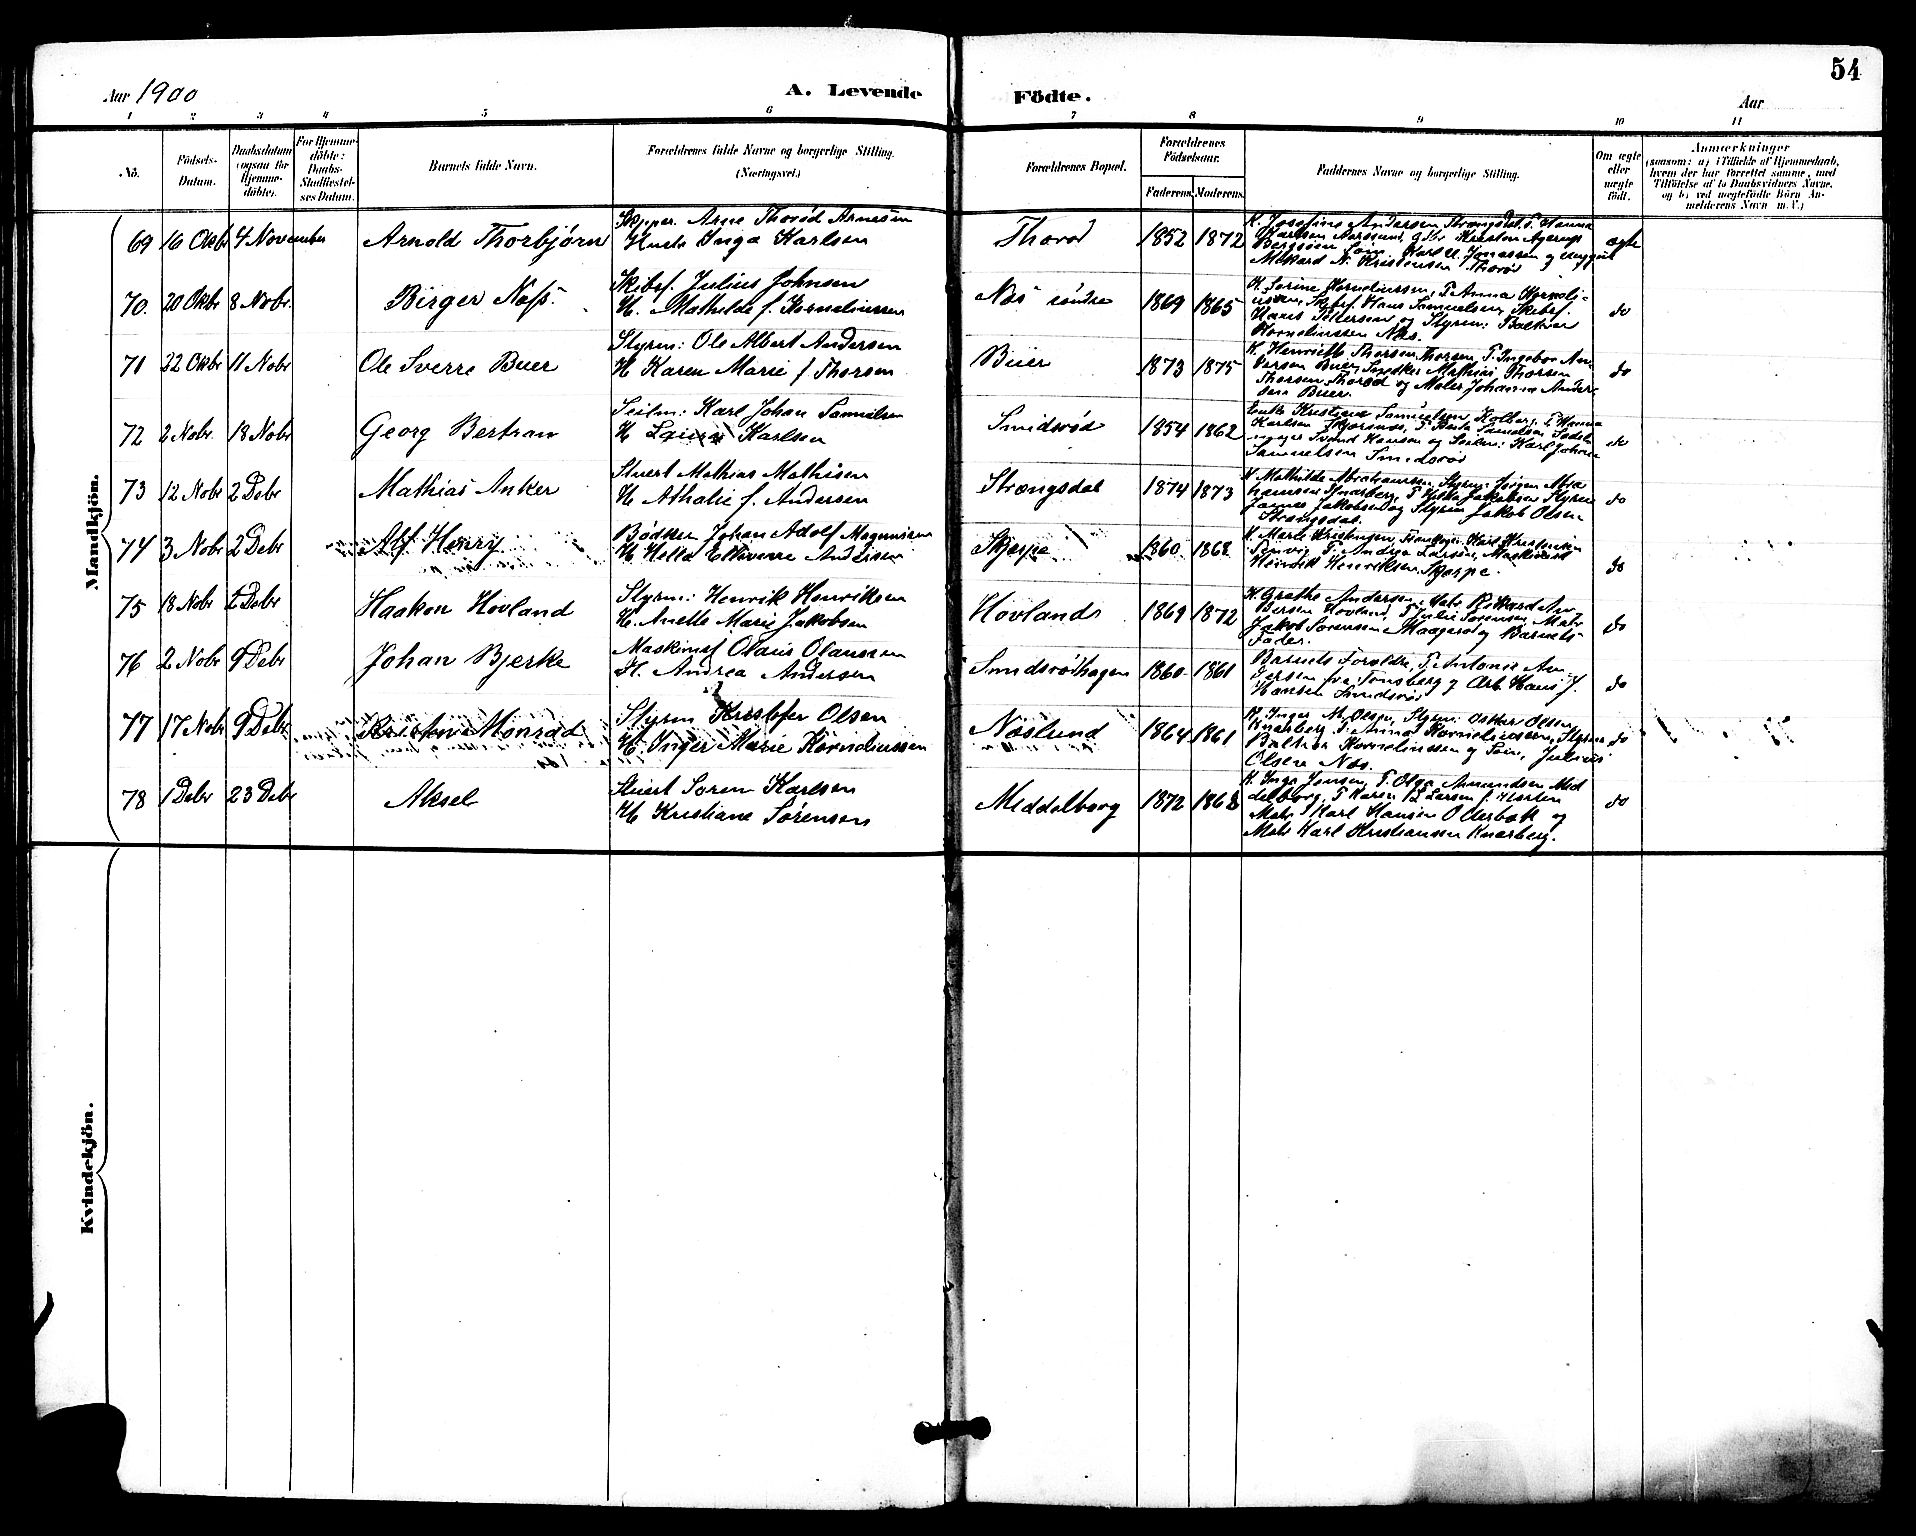 54
Aar 1900
A. Levende Födte.
Aar
1 2 3 4 5 6 7 8 9 10 11
No.
Födsels-
Datum.
Daabsdatum
(ogsaa for
Hjemme-
döbte).
For Hjemme-
döbte:
Daabs-
Stadfæstel-
ses Datum.
Barnets fulde Navn.
Forældrenes fulde Navne og borgerlige Stilling.
(Næringsvei.)
Forældrenes Bopæl.
Forældrenes
Födselsaar.
Faderens. Moderens.
Faddernes Navne og borgerlige Stilling.
Om ægte
eller
uægte
födt.
Anmærkninger
(saasom: a) i Tilfælde af Hjemmedaab,
hvem der har forrettet samme, med
Tilföielse af to Daabsvidners Navne,
og b) ved uægtefödte Börn An-
melderens Navn m. V.)
Mandkjön.
69 16 Oktbr 4 November Arnold Thorbjørn
Skipper Arne Thorød Arnesen
Hustr Inga Karlsen
Thorød 1852 1872
K. Josefine Andersen Strængsdal, P. Hanna
Karlsen Aarsund, Gbr Kristen Agerup
Bergsøen, Søm. Karl U. Jonassen og Ungkarl
N. Kristensen Thorød
ægte
70. 20 Oktbr 8 Nobr. Birger Næss.
Skibsf. Julius Johnsen
H. Mathilde f. Korneliussen
Næs søndre 1869 1865
K. Serine Korneliussen, P. Anna Korneli-
ussen, Skibsf. Hans Samuelsen, Skibsf.
Hans Pettersen og Styrm: Baltsar
Korneliussen Næs.
do
71 22 Oktbr 11 Nobr Ole Sverre Buer
Styrm: Ole Albert Andersen
H Karen Marie f Thorsen
Buer 1873 1875
K. Henriette Thorsen Thorsen, P. Ingebor An-
dersen Buer, Snedker Mathias Thorsen
Thorsen Thorød og Maler Johannes Ander-
sen Buer.
do
72 2 Nobr. 18 Nobr Georg Bertran
Seilm: Karl Johan Samuelsen
H Karlsen
Smidsrød 1854 1862
Enke Kristiane Samuelsen Kolberg, P. Hanna
Karlsen Skjærsnæs, P. Berta Samuelsen
Svend Hansen og Karl Johan
Samuelsen Smidsrød
do
73 12 Nobr 2 Debr Mathias Anker
Stuert Mathias Mathisen
H Athalie f. Andersen
Strængsdal 1874 1873
K Mathilde Abrahamsen, Styrm: Jørgen Abra-
hamsen Knarberg, P Hilda Jakobsen, Styrm
Jakobsen og Styrm Jakob Olsen
Strængsdal.
do
74 3 Nobr 2 Debr Alf Henry
Bødker Johan Adolf Magnussen
H. Andersen
Skjerpe 1860 1868
K. Marte Kristensen, Karl Kristensen
P. Andrea Larsen, Maskinist
Henrik Henriksen Skjerpe.
do
75 18 Nobr Debr Haakon Hovland
Styrm: Henrik Henriksen
H. Anette Marie Jakobsen
Hovland 1869 1872
K. Grethe Andersen, Matr. Rikard An-
dersen Hovland, P. Julie Sørensen, Matr
Jakob Sørensen Maagerø og Barnets
Fader.
do
76 2 Nobr 9 Debr Johan Bjerke
Maskinist Olaus Olaussen
H. Andrea Andersen
Smidsrødhagen 1860 1861
Barnets Forældre, P. Antonie An-
dersen Tønsberg og Arb. Hans J.
Hansen Smidsrød
do
77 17 Nobr 9 Debr Monrad
Styrm Kristofer Olsen
H. Inger Marie Korneliussen
Næslund 1864 1861
K. Inger M. Olsen, Styrm: Oskar Olsen
Knarberg, P. Anna Korneliussen, Styrm
Baltsar Korneliussen og Søm. Julius
Olsen Næs.
do
78 1 Debr 23 Debr Aksel
Stuert Søren Karlsen
H. Kristiane Sørensen
Middelborg 1872 1868
K. Inga Jensen, P. Olga Amundsen Mid-
delborg, P Karen L Larsen f. Horten
Matr. Karl Hansen Oterbæk og
Matr Karl Kristiansen Knarberg.
do
Kvindekjön.